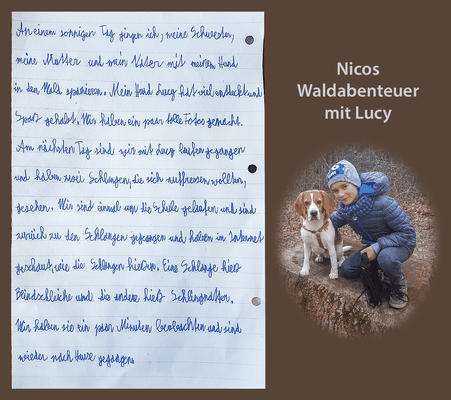 An einem sonnigen Tag gingen ich, meine Schwester,
meine Mutter und mein Vater mit meinem Hund
in den Wald spazieren. Mein Hund Lucy hat viel entdeckt und
Spaß gehabt. Wir haben ein paar tolle Fotos gemacht.
Am nächsten Tag sind wir mit Lucy laufen gegangen
und haben zwei Schlangen, die sich auffressen wollten,
gesehen. Wir sind einmal um die Schule gelaufen und sind
zurück zu den Schlangen gegangen und haben im Internet
geschaut, wie die Schlangen hießen. Eine Schlange hieß
Blindschleiche und die andere hieß Schlingnatter.
Wir haben sie ein paar Minuten beobachten und sind
wieder nach Hause gegangen.
Nicos
Waldabenteuer
mit Lucy